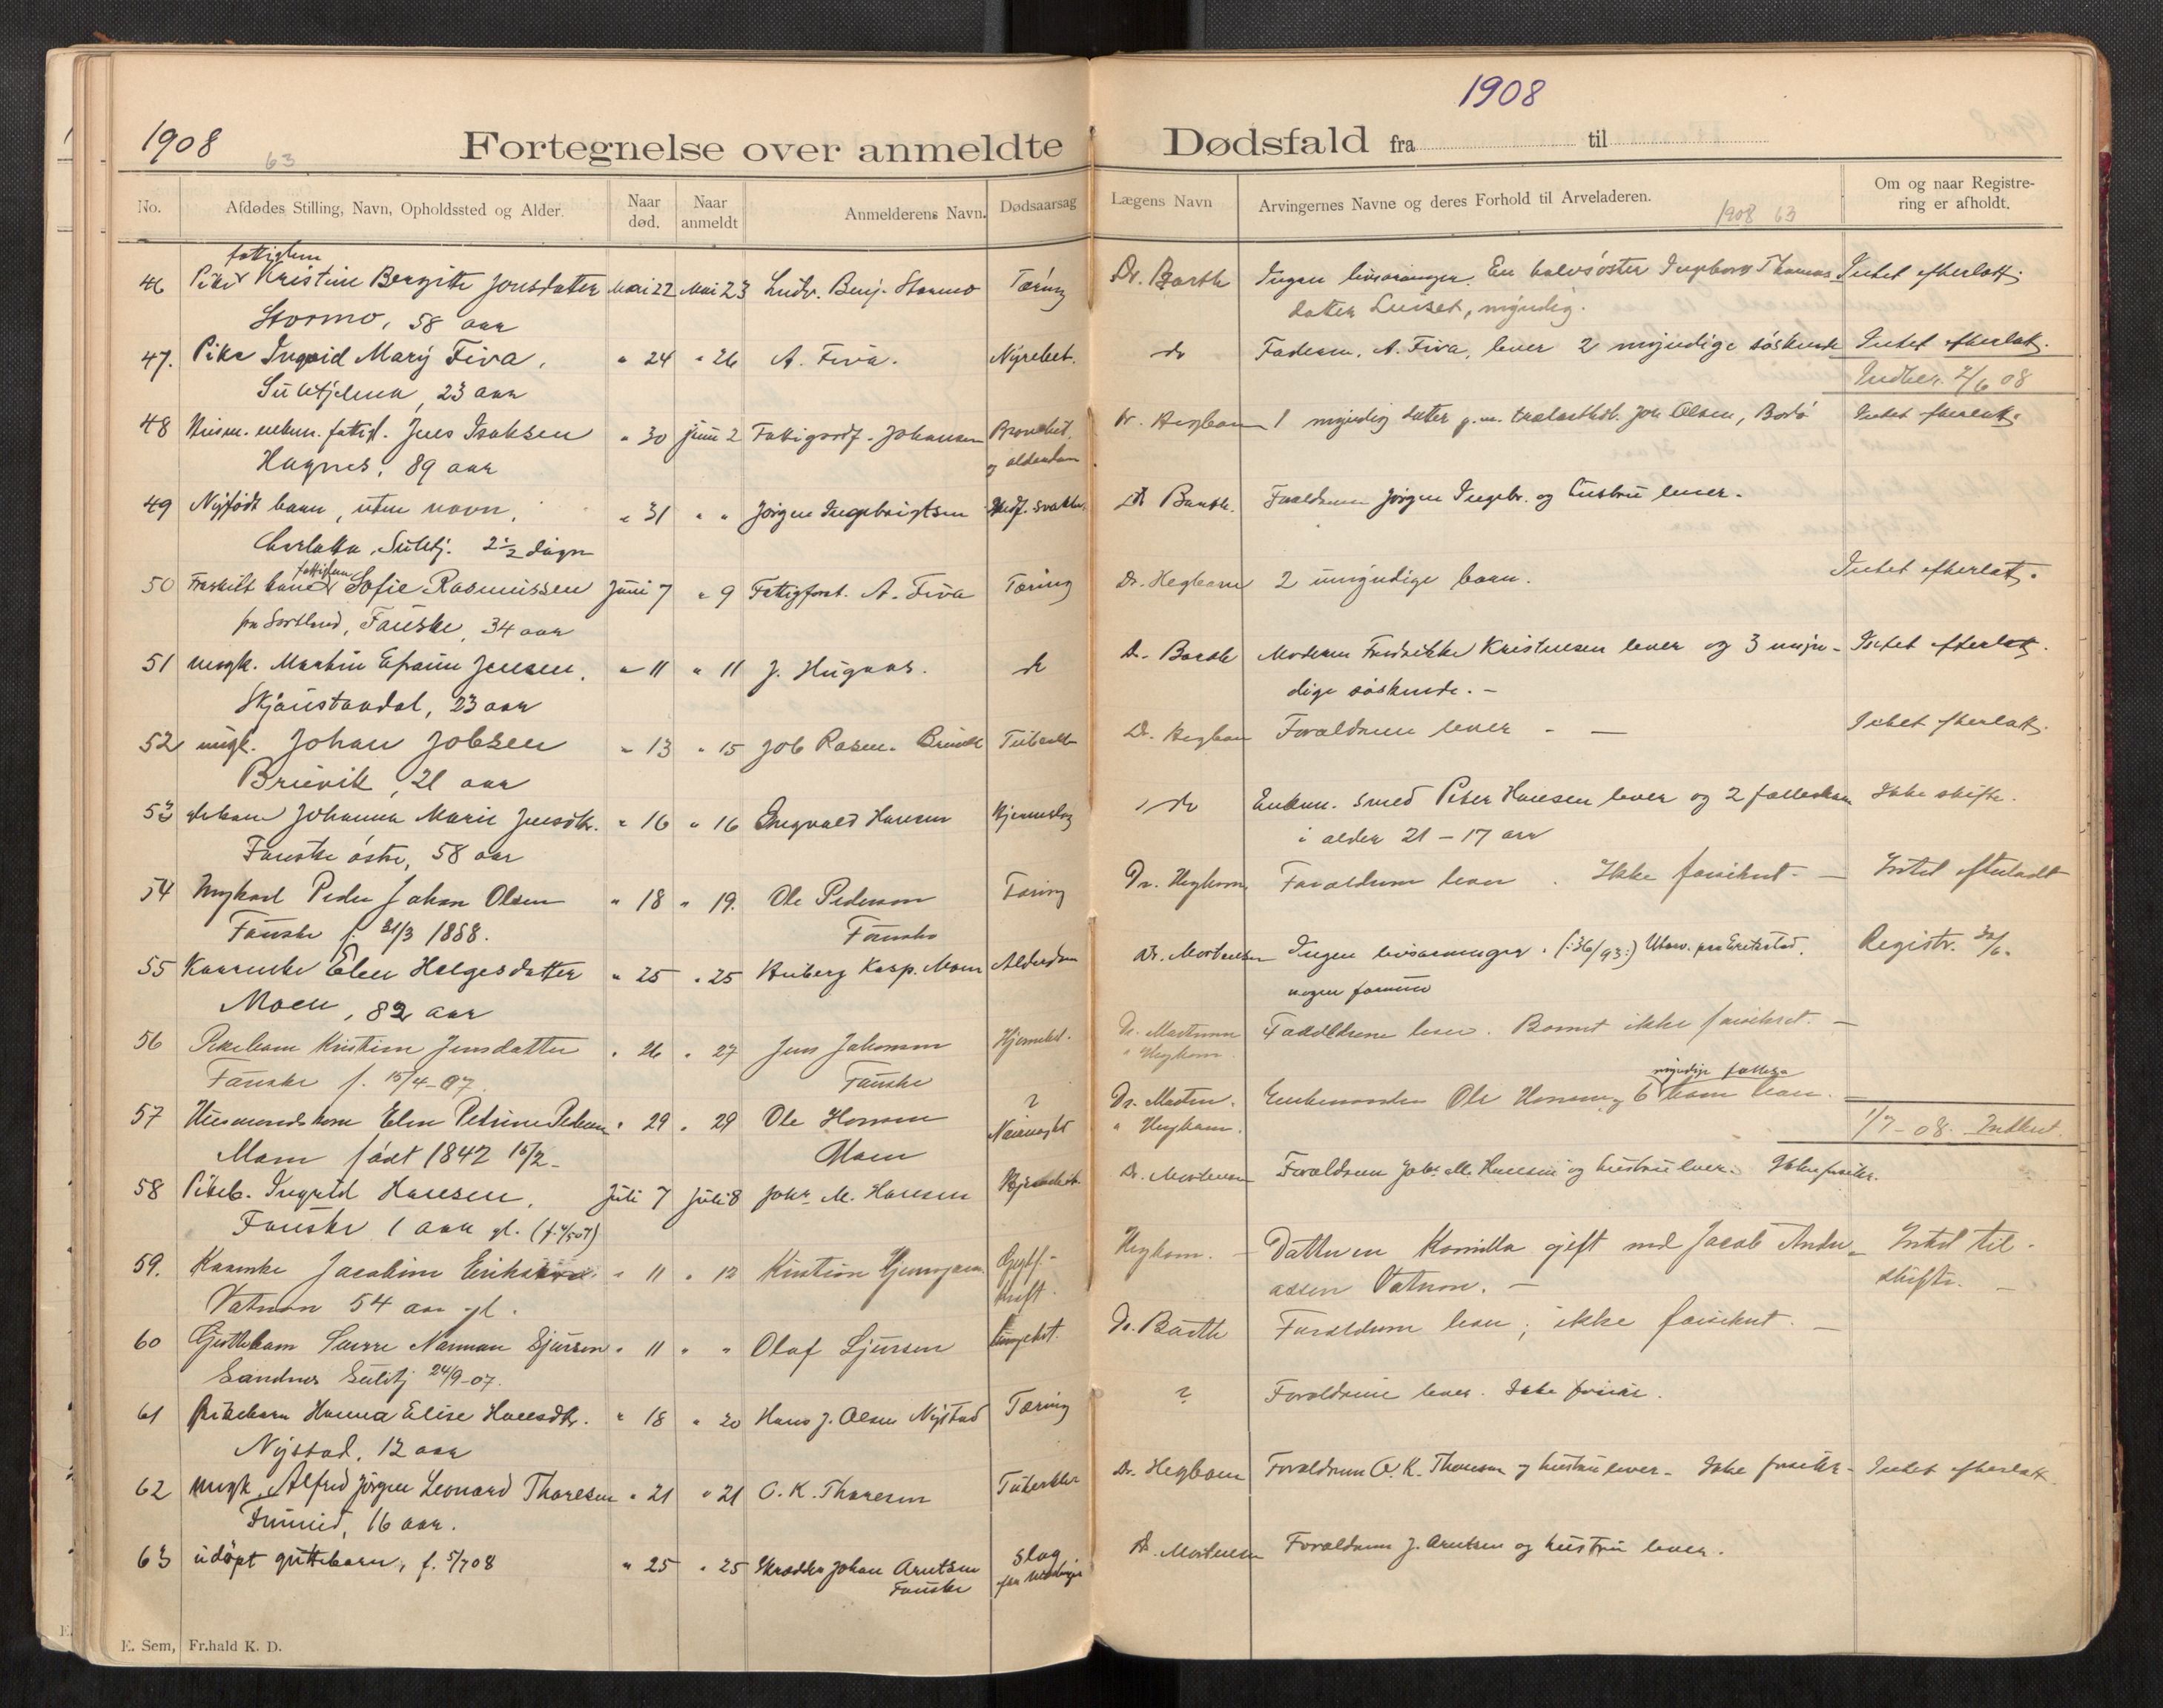 1908
1908
63
Fortegnelse over anmeldte Dødsfald fra til
1908 63
No. Afdødes Stilling, Navn, Opholdssted og Alder. Naar død. Naar anmeldt Anmelderens Navn. Dødsaarsag Lægens Navn Arvingernes Navne og deres Forhold til Arveladeren. Om og naar Registrering er afholdt.
fattiglem
46 Pike Kristine Bergitte Jonsdatter Mai 22 Mai 23 Ludv. Benj. Stormo Tæring Dr. Barth Ingen livsarvinger. En halvsøster Ingeborg Thomas- Intet efterlatt.
Stormo, 58 aar datter myndig.
47. Pike Mary Fiva, " 24 " 26 A. Fiva. Nyrebet. do Faderen, A. Fiva, lever 2 myndige søskende Intet efterlatt.
Sulitjelma, 23 aar Indber. 2/6 08
48 enkem. fattigl. Jens Isaksen " 30 Juni 2 Johansen Bronchit. Dr. Hegbom 1 myndig datter g.m. Joh Olsen, Bodø Intet efterlatt.
Hagnes, 89 aar og alderdom
49 Nyfødt barn, uten navn, " 31 " " Jørgen Ingebrigtsen Dr Barth. Forældrene Jørgen Ingebr. og hustru lever.
Sulitj. 2 1/2 døgn
fattiglem
50 Fraskilt kone Sofie Rasmussen Juni 7 " 9 Fattigforst. A. Fiva Tæring Dr. Hegbom 2 umyndige barn. Intet efterlatt.
fra Sortland, Fauske, 34 aar
51 ungk. Martin Efraim Jensen, " 11 " 11 J. Hugaas. do Dr. Barth Moderen Fredrikke Kristensen lever og 3 myn- Intet efterlatt.
Skjønstaadal, 23 aar dige søskende. -
52 ungk. Johan Jobsen " 13 " 15 Job Rasm. Dr. Hegbom Forældrene lever - - Intet efterlatt.
Bruvik, 21 aar
53 Johanna Marie Jensdtr. " 16 " 16 Ingvald Hansen Hjerneslag " do Enkem. smed Peter Hansen lever og 2 fællesbarn Ikke skifte.
Fauske østre, 58 aar i alder 21 - 17 aar
54 Ungkarl Peder Johan Olsen " 18 " 19. Ole Pedersen Tæring Dr. Hegbom Forældrene lever. Ikke forsikret. - Intet efterladt
Fauske f. 21/3 1888. Fauske
55 Kaarenke Elen Helgesdatter " 25 " 25 Kasp. Moen Alderdom Dr. Mortensen Ingen livsarvinger. (:36/93:) Registr. /6.
Moen, 82 aar
56 Pikebarn Kristine Jensdatter " 26 " 27 Jens Johansen Hjernebet. Dr. Mortensen Forældrene lever. Barnet ikke forsikret. -
Fauske f. 15/4-07. Fauske " Hegbom.
myndige fælles
57 Husmandskone Elen Petrine Pedersen " 29 " 29 Ole Hansen ? Dr. Morten. Enkemanden Ole Hansen, 6 barn lever. -
Moen født 1842 15/2- Moen " Hegbom. 1/7-08. Indber.
58 Pikeb. Ingrid Hansen, Juli 7 Juli 8 Johs. M. Hansen Dr. Mortensen Forældrene Johs. M. Hansen og hustru lever. Ikke forsikr.
Fauske 1 aar gl.
59. Kaarenke Jacobine " 11 " 12 Kristian Hegbom. - Datteren Kamilla gift med Jacob Andre- Intet til
Vatnan 54 aar gl. assen Vatnan. - skifte. -
60 Guttebarn Sverre Norman Sjursen " 11 " " Olaf Sjursen Lungebet. Dr. Barth Forældrene lever; ikke forsikret. -
Sandnes Sulitj 24/9-07.
61 Pikebarn Hanna Elise Hansdtr. " 18 " 20 Hans J. Olsen Nystad Tæring ? Forældrene lever. Ikke forsikr.
Nystad, 12 aar
62 ungk. Alfred Jørgen Leonard Thoresen " 21 " 21 O. K. Thoresen Tuberkler Dr. Hegbom Forældrene O. K. Thoresen og hustru lever - Ikke forsikr - Intet efterlatt
16 aar.
63 udøpt guttebarn, f. 5/7 08 " 25 " 25 Skrædder Johan Arntsen Slag Dr. Mortensen Forældrene J. Arntsen og hustru lever.
Fauske
E. Sem, Fr.hald K. D.